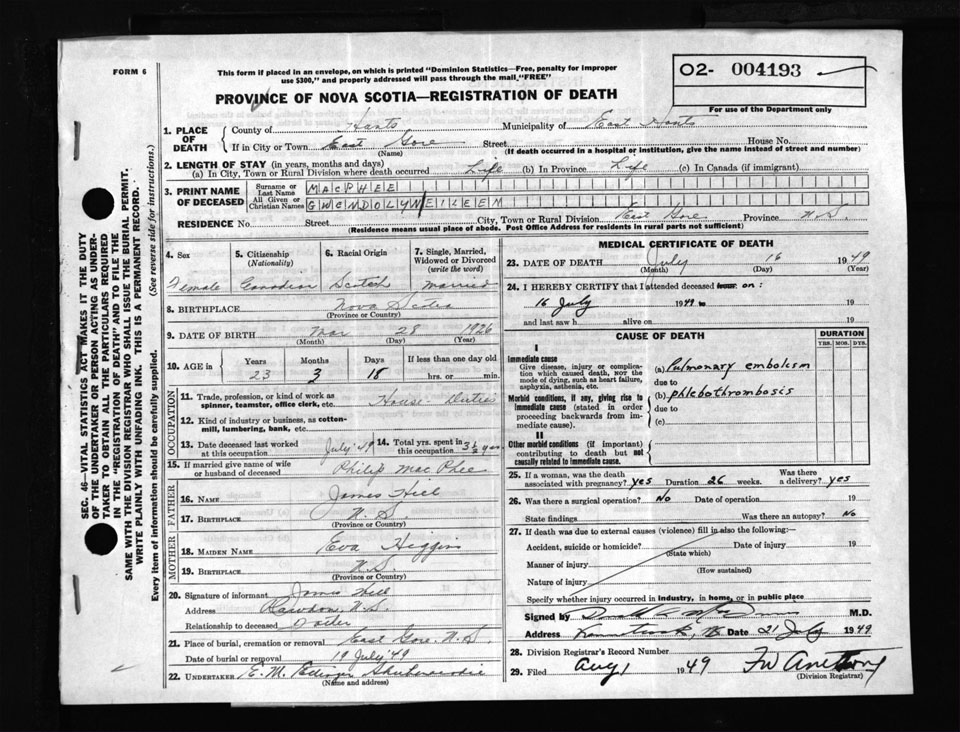 FORM 6
This form if placed in an envelope, on which is printed "Dominion Statistics—Free, penalty for improper
use $300," and properly addressed will pass through the mail "FREE"
02- 004193
For use of the Department only
PROVINCE OF NOVA SCOTIA—REGISTRATION OF DEATH
SEC. 46—VITAL STATISTICS ACT MAKES IT THE DUTY
OF THE UNDERTAKER OR PERSON ACTING AS UNDER-
TAKER TO OBTAIN ALL THE PARTICULARS REQUIRED
IN THE "REGISTRATION OF DEATH" AND TO FILE THE
SAME WITH THE DIVISION REGISTRAR WHO SHALL ISSUE THE BURIAL PERMIT.
WRITE PLAINLY WITH UNFADING INK. THIS IS A PERMANENT RECORD.
Every item of information should be carefully supplied. (See reverse side for instructions.)
1. PLACE OF DEATH County of Hants Municipality of East Hants
If in City or Town East Gore Street House No.
(Name) (If death occurred in a hospital or institution, give the name instead of street and number)
2. LENGTH OF STAY (in years, months and days)
(a) In City, Town or Rural Division where death occurred Life (b) In Province Life (c) In Canada (if immigrant)
3. PRINT NAME OF DECEASED Surname or Last Name MACPHEE
All Given or Christian Names GWENDOLYN EILEEN
RESIDENCE No. Street City, Town or Rural Division East Gore Province N.S.
(Residence means usual place of abode. Post Office Address for residents in rural parts not sufficient)
4. Sex 5. Citizenship (Nationality) 6. Racial Origin 7. Single, Married, Widowed or Divorced (write the word)
Female Canadian Scotch Married
8. BIRTHPLACE Nova Scotia
(Province or Country)
9. DATE OF BIRTH Mar 28 1926
(Month) (Day) (Year)
10. AGE in Years Months Days If less than one day old
23 3 18 hrs. or min.
OCCUPATION
11. Trade, profession, or kind of work as spinner, teamster, office clerk, etc. House-Duties
12. Kind of industry or business, as cotton-mill, lumbering, bank, etc.
13. Date deceased last worked at this occupation July '49 14. Total yrs. spent in this occupation 3½ yrs
15. If married give name of wife or husband of deceased Philip MacPhee
FATHER
16. NAME James Hill
17. BIRTHPLACE N.S.
(Province or Country)
MOTHER
18. MAIDEN NAME Eva Higgins
19. BIRTHPLACE N.S.
(Province or Country)
20. Signature of informant James Hill
Address Rawdon, N.S.
Relationship to deceased Father
21. Place of burial, cremation or removal East Gore, N.S.
Date of burial or removal 19 July '49
22. UNDERTAKER E. M. Shubenacadie
(Name and address)
MEDICAL CERTIFICATE OF DEATH
23. DATE OF DEATH July 16 1949
(Month) (Day) (Year)
24. I HEREBY CERTIFY that I attended deceased from on:
16 July 1949 to 19
and last saw h alive on 19
CAUSE OF DEATH DURATION
YRS. MOS. DYS.
I
Immediate cause
Give disease, injury or complication which caused death, NOT the mode of dying, such as heart failure, asphyxia, asthenia, etc.
(a) Pulmonary embolism
due to
Morbid conditions, if any, giving rise to immediate cause (stated in order proceeding backwards from immediate cause)
(b) phlebothrombosis
due to
(c)
II
Other morbid conditions (if important) contributing to death but not causally related to immediate cause.
25. If a woman, was the death associated with pregnancy? yes Duration 26 weeks. Was there a delivery? yes
26. Was there a surgical operation? No Date of operation 19
State findings Was there an autopsy? No
27. If death was due to external causes (violence) fill in also the following:—
Accident, suicide or homicide? Date of injury 19
(State which)
Manner of injury
(How sustained)
Nature of injury
Specify whether injury occurred in industry, in home, or in public place
Signed by M.D.
Address Date 21 July 1949
28. Division Registrar's Record Number
29. Filed Aug 1 1949
(Division Registrar)